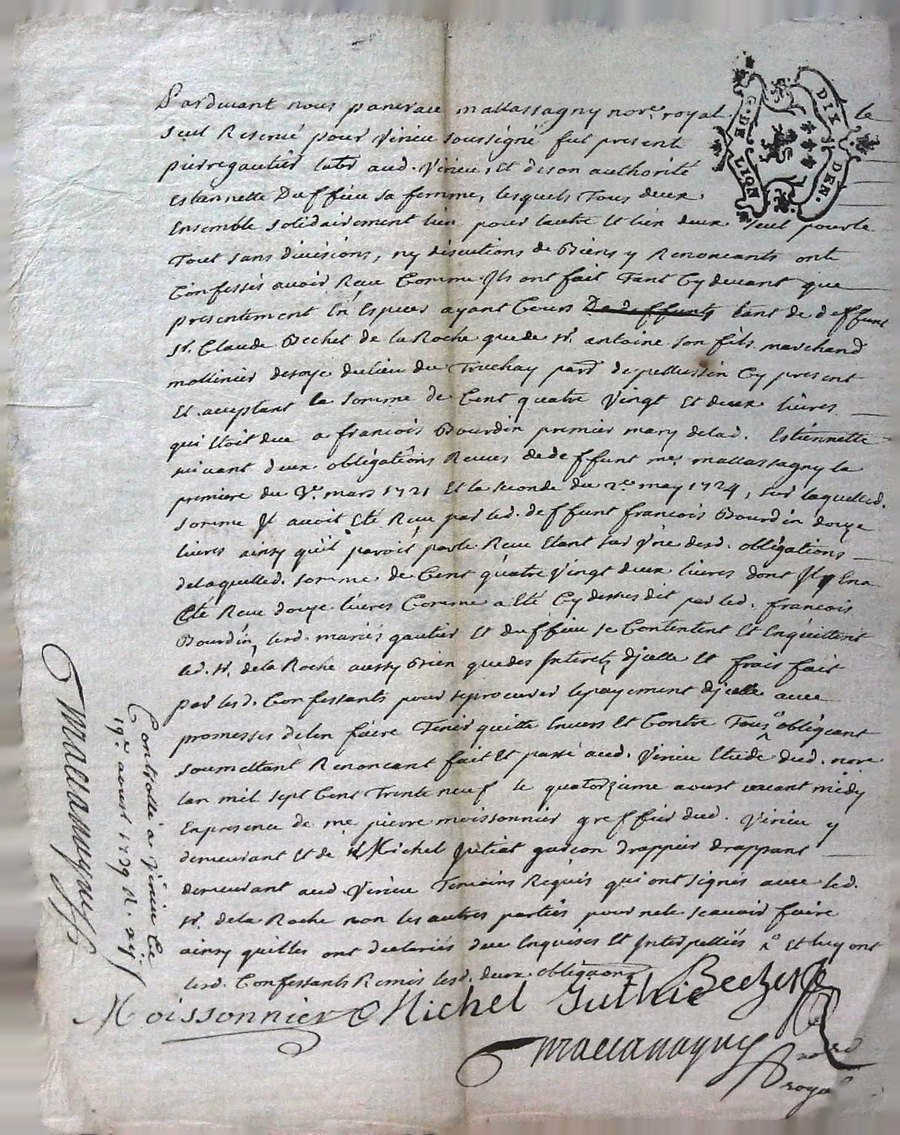 Pardevant nous pancrace mallassagny nore. royal le
seul Reservé pour Virieu soussigné fut present
pierre gautier labr aud. Virieu, Et de son authorité
Estiennette Duffieu sa femme, lesquels Tous deux
Ensemble solidairement lun pour lautre Et lun deux seul pour le
Tout sans divisions, ny discutions de Biens y Renoncants ont
Confessés avoir Receu Comme Ils ont fait Tant Cy devant que
presentement En Especes ayant Cours De deffunts tant de deffunt
sr. Claude Bechet de la Roche que de sr. antoine son fils marchand
mollinier de soye du lieu du Truchay parr. de pellussin Cy present
Et acceptant la somme de Cent quatre Vingt Et deux livres
qui Etoit due a françois Bourdin premier mary de lad. Estiennette
suivant deux obligations Receues de deffunt me. mallassagny la
premiere du Ve. mars 1721 Et la seconde du 2e. may 1724, sur laquelle d.
somme Il avoit Eté Receu par led. deffunt francois Bourdin douze
livres ainsy quil paroit par le Receu Etant sur Vne desd. obligations
de laquelle d. somme de Cent quatre Vingt deux livres dont Il y En a
Eté Receu douze livres Comme a Eté Cy dessus dit par led. francois
Bourdin, lesd. mariés gautier Et duffieu se Contentent Et Enquittent
led. sr. de la Roche aussy Bien que des Interets dicelle Et frais fait
par lesd. Confessants pour se procurer le payement dicelle avec
promesses de len faire Tenir quitte Envers Et Contre Tous obligeant
soumettant Renoncant fait Et passé aud. Virieu Etude dud. nore
lan mil sept Cent Trente neuf le quatorzieme aoust avant midy
En presence de me. pierre moissonnier greffier dud. Virieu y
demeurant Et de Michel Jutiet garcon drappier drappant
demeurant aud. Virieu Temoins Requis qui ont signés avec led.
sr. de la Roche non les autres parties pour ne le scavoir faire
ainsy quilles ont declarées deue Enquises Et Interpellées Et luy ont
lesd. Confessants Remis lesd. deux obligaons
Moissonnier Michel Juthie Bechet
royal
Controllé a Virieu Ce
19e. aoust 1739
G. DE LION
DIX DEN.